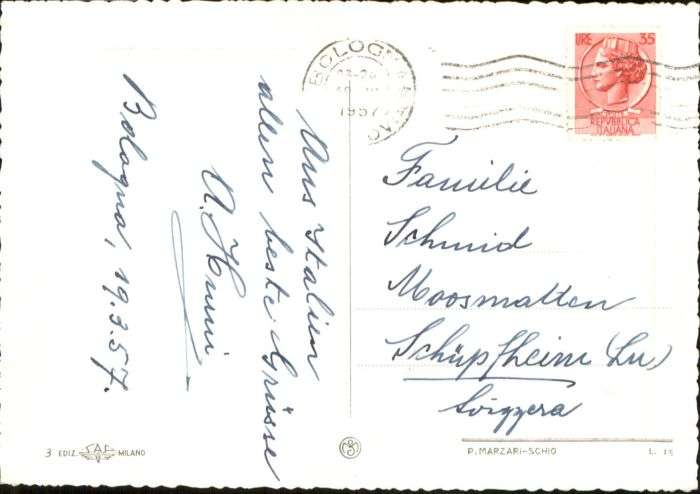 Bologna, 19.3.57.
Aus Italien
allen beste Grüsse
BOLOGNA
1957
LIRE 35
REPVBBLICA
ITALIANA
Familie
Schmid
Moosmatten
Schüpfheim (Lu)
Svizzera
3 EDIZ. SAF MILANO
P. MARZARI-SCHIO